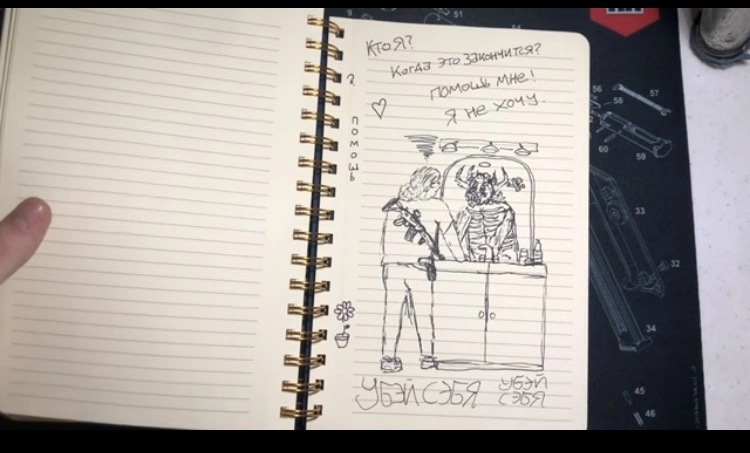 Кто я?
Когда это закончится?
помощь мне!
Я не хочу.
?
помошь
Убэй сэбя
Убэй
сэбя
51
56
57
58
60
59
33
32
34
45
46